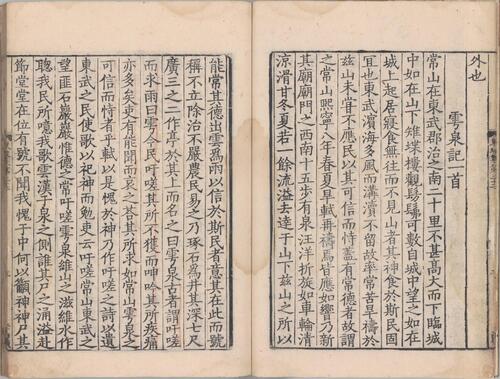 外也
雩泉記一首
常山在東武郡治之南二十里不甚高大而下臨城
中如在下雉堞樓觀髣髴可數自城中望之如在
城上起居寢食無往而不見山者其神食於斯民固
宜也東武濱海多風而溝瀆不留故率常苦旱禱於
兹山未甞不應民以其可信而恃蓋有常德者故謂
之常山熙寧八年春夏旱軾再禱焉皆應如響乃新
其廟廟門之西南十五步有泉汪洋折旋如車輪清
涼滑甘冬夏若一餘流溢去達于山下兹山之所以
能常其德出雲爲雨以信於斯民者意其在此而號
稱不立除治不嚴農民易之乃琢石爲井其深七尺
廣三之二作亭於其上而名之曰雩泉古者謂吁嗟
而求雨曰雩今民吁嗟其所不獲而呻吟其所疾痛
亦多矣吏有能聞而哀之荅其所求如常山雩泉之
可信而恃者乎軾以是愧於神乃作吁嗟之詩以遺
東武之民使歌以祀神而勉吏云吁嗟常山東武之
望匪石巖巖惟德之常吁嗟雩泉維山之滋維水作
聰我民所噫我歌雲漢于泉之側誰其尸之涌溢赴
節堂堂在位有號不聞我愧于中何以籲神神尸其